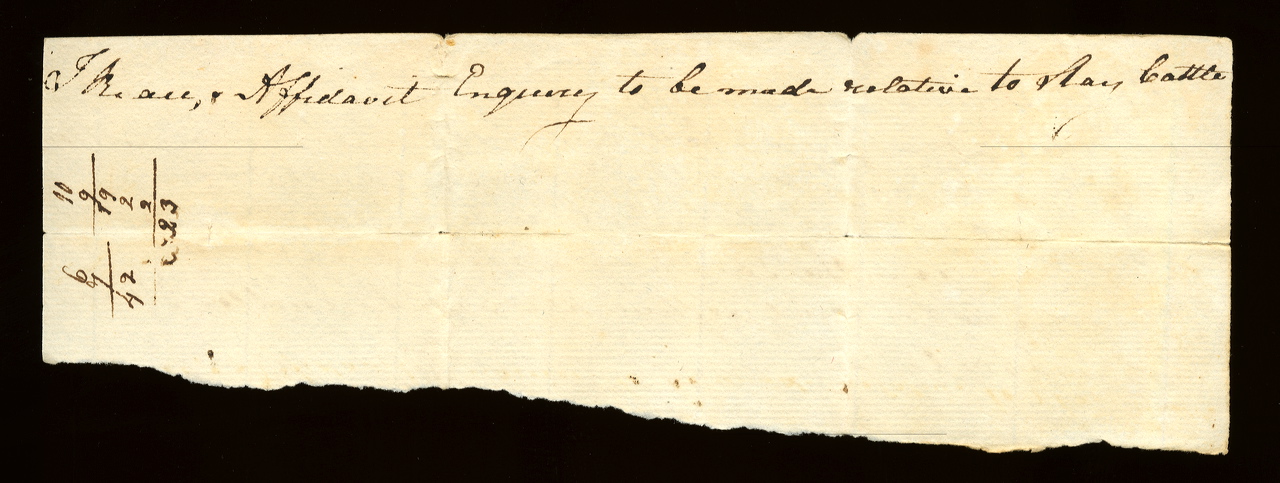 & Affidavit Enquiry to be made relative to Stay Cattle
10
9
19
2
2
23
6
7
42